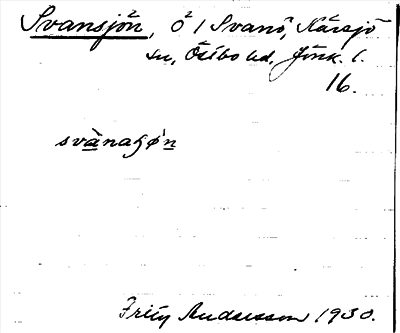 Svansjön, Ö / Svanö, Kärsjö
sn, Östbo hd, Jönk. l.
16.
svànaꞩø̀n
Fritz Andersson 1930.